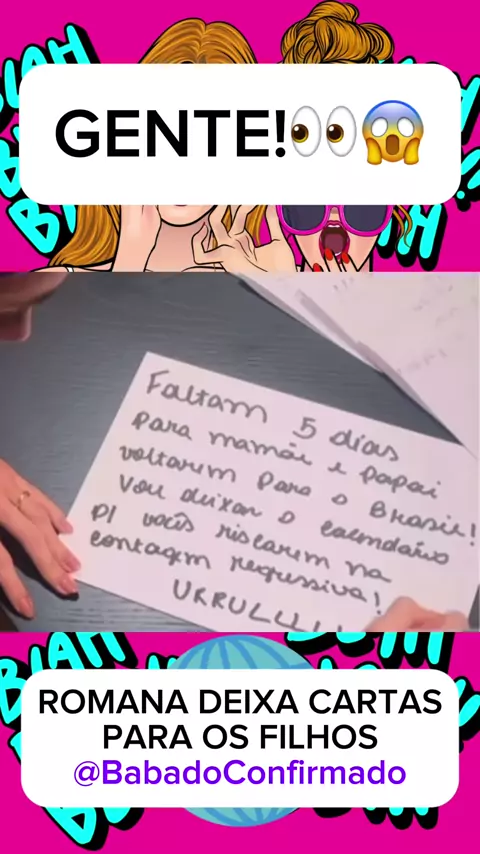 BLAH
GENTE!👀😱
Faltam 5 dias
para mamãe e papai
voltarem para o Brasil!
Vou deixar o calendário
p/ vocês riscarem na
contagem regressiva!
URRULLLL!
BLAH
ROMANA DEIXA CARTAS
PARA OS FILHOS
@BabadoConfirmado